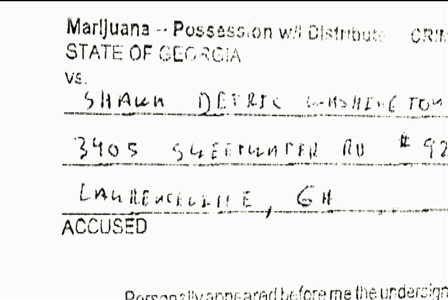 Marijuana -- Possession w/I Distribute CRI
STATE OF GEORGIA
vs.
SHAWN DETRIC WASHINGTON
3405 SWEETWATER RD # 92
LAWRENCEVILLE, GA
ACCUSED
Personally appeared before me the undersign